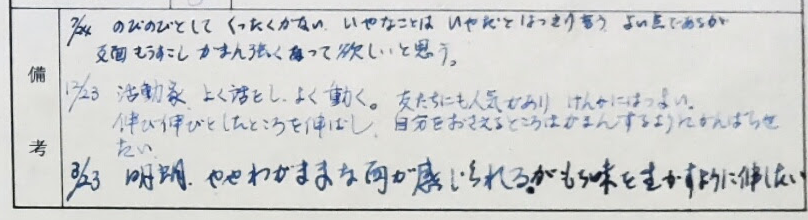 備考
7/24 のびのびとして くったくがない。いやなことは いやだとはっきり言う よい点であるが
反面 もうすこし がまん強くなって欲しいと思う。
12/23 活動家、よく話をし、よく動く。友たちにも人気があり けんかにはつよい。
伸び伸びとしたところを伸ばし、自分をおさえるところはがまんするようにがんばらせ
たい。
3/23 明朗、ややわがままな面が感じられるがもち味を生かすように伸したい